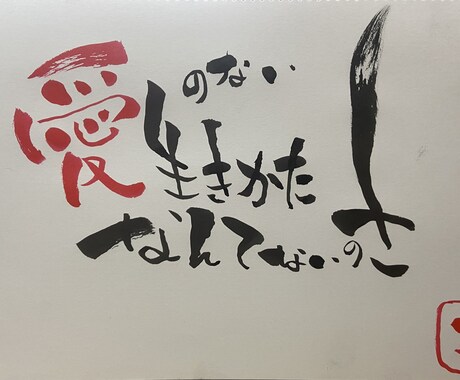 愛のない
生きかた
なんてないのさ